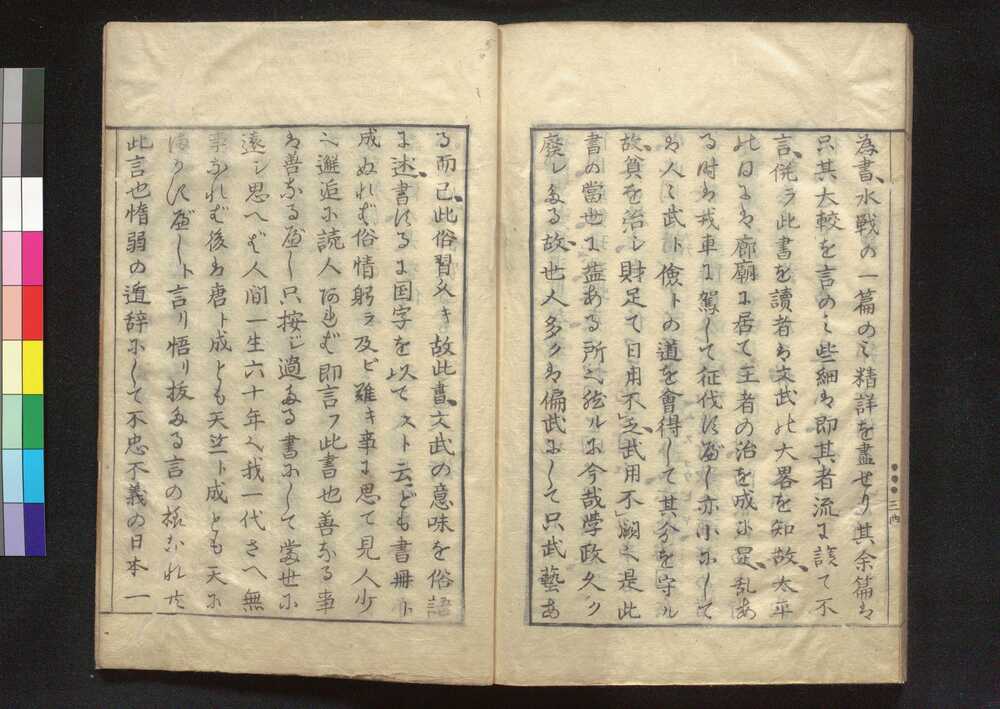 為書、水戦の一篇のミ精詳を盡せり其余篇ハ
只其大較を言のミ些細ハ即其者流に譲て不
言、併ラ此書を讀者ハ文武の大畧を知故、太平
の日にハ廊廟に居て王者の治を成に足、乱あ
る時ハ戎車に駕して征伐すべし亦小にして
ハ人々武ト儉トの道を會得して其分を守ル
故、貧を治シ財足て日用不乏、武用不闕、是此
書の當世に益ある所也然ルに今哉學政久ク
廢レたる故、世人多クハ偏武にして只武藝あ
る而已、此俗習久キ故此書、文武の意味を俗語
に述、書するに国字を以てスト云ども書冊ト
成ぬれバ俗情躬ラ及ビ難キ事に思て見人少
也邂逅に読人あれバ即言フ此書也善なる事
ハ善なるべし只按ジ過たる書にして當世に
遠シ思へバ人間一生六十年也我一代さへ無
事なれバ後ハ唐ト成とも天竺ト成とも天に
まかすべしト言リ悟リ抜たる言の様なれ共
此言也惰弱の遁辞にして不忠不義の日本一